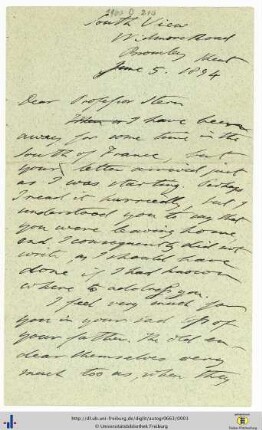 South View
Widmore Road
Bromley Kent
June 5. 1894
Dear Professor Stern
I have been
away for some time in the
south of France, but
your letter arrived just
as I was starting. Perhaps
I read it hurriedly, but I
understood you to say that
you were leaving home
and I consequently did not
write, as I should have
done if I had known
where to address you.
I feel very much for
you in your sad loss of
your father. The old en
dear themselves very
much to us, when they
http://dl.ub.uni-freiburg.de/diglit/autogr0663/0001
© Universitätsbibliothek Freiburg